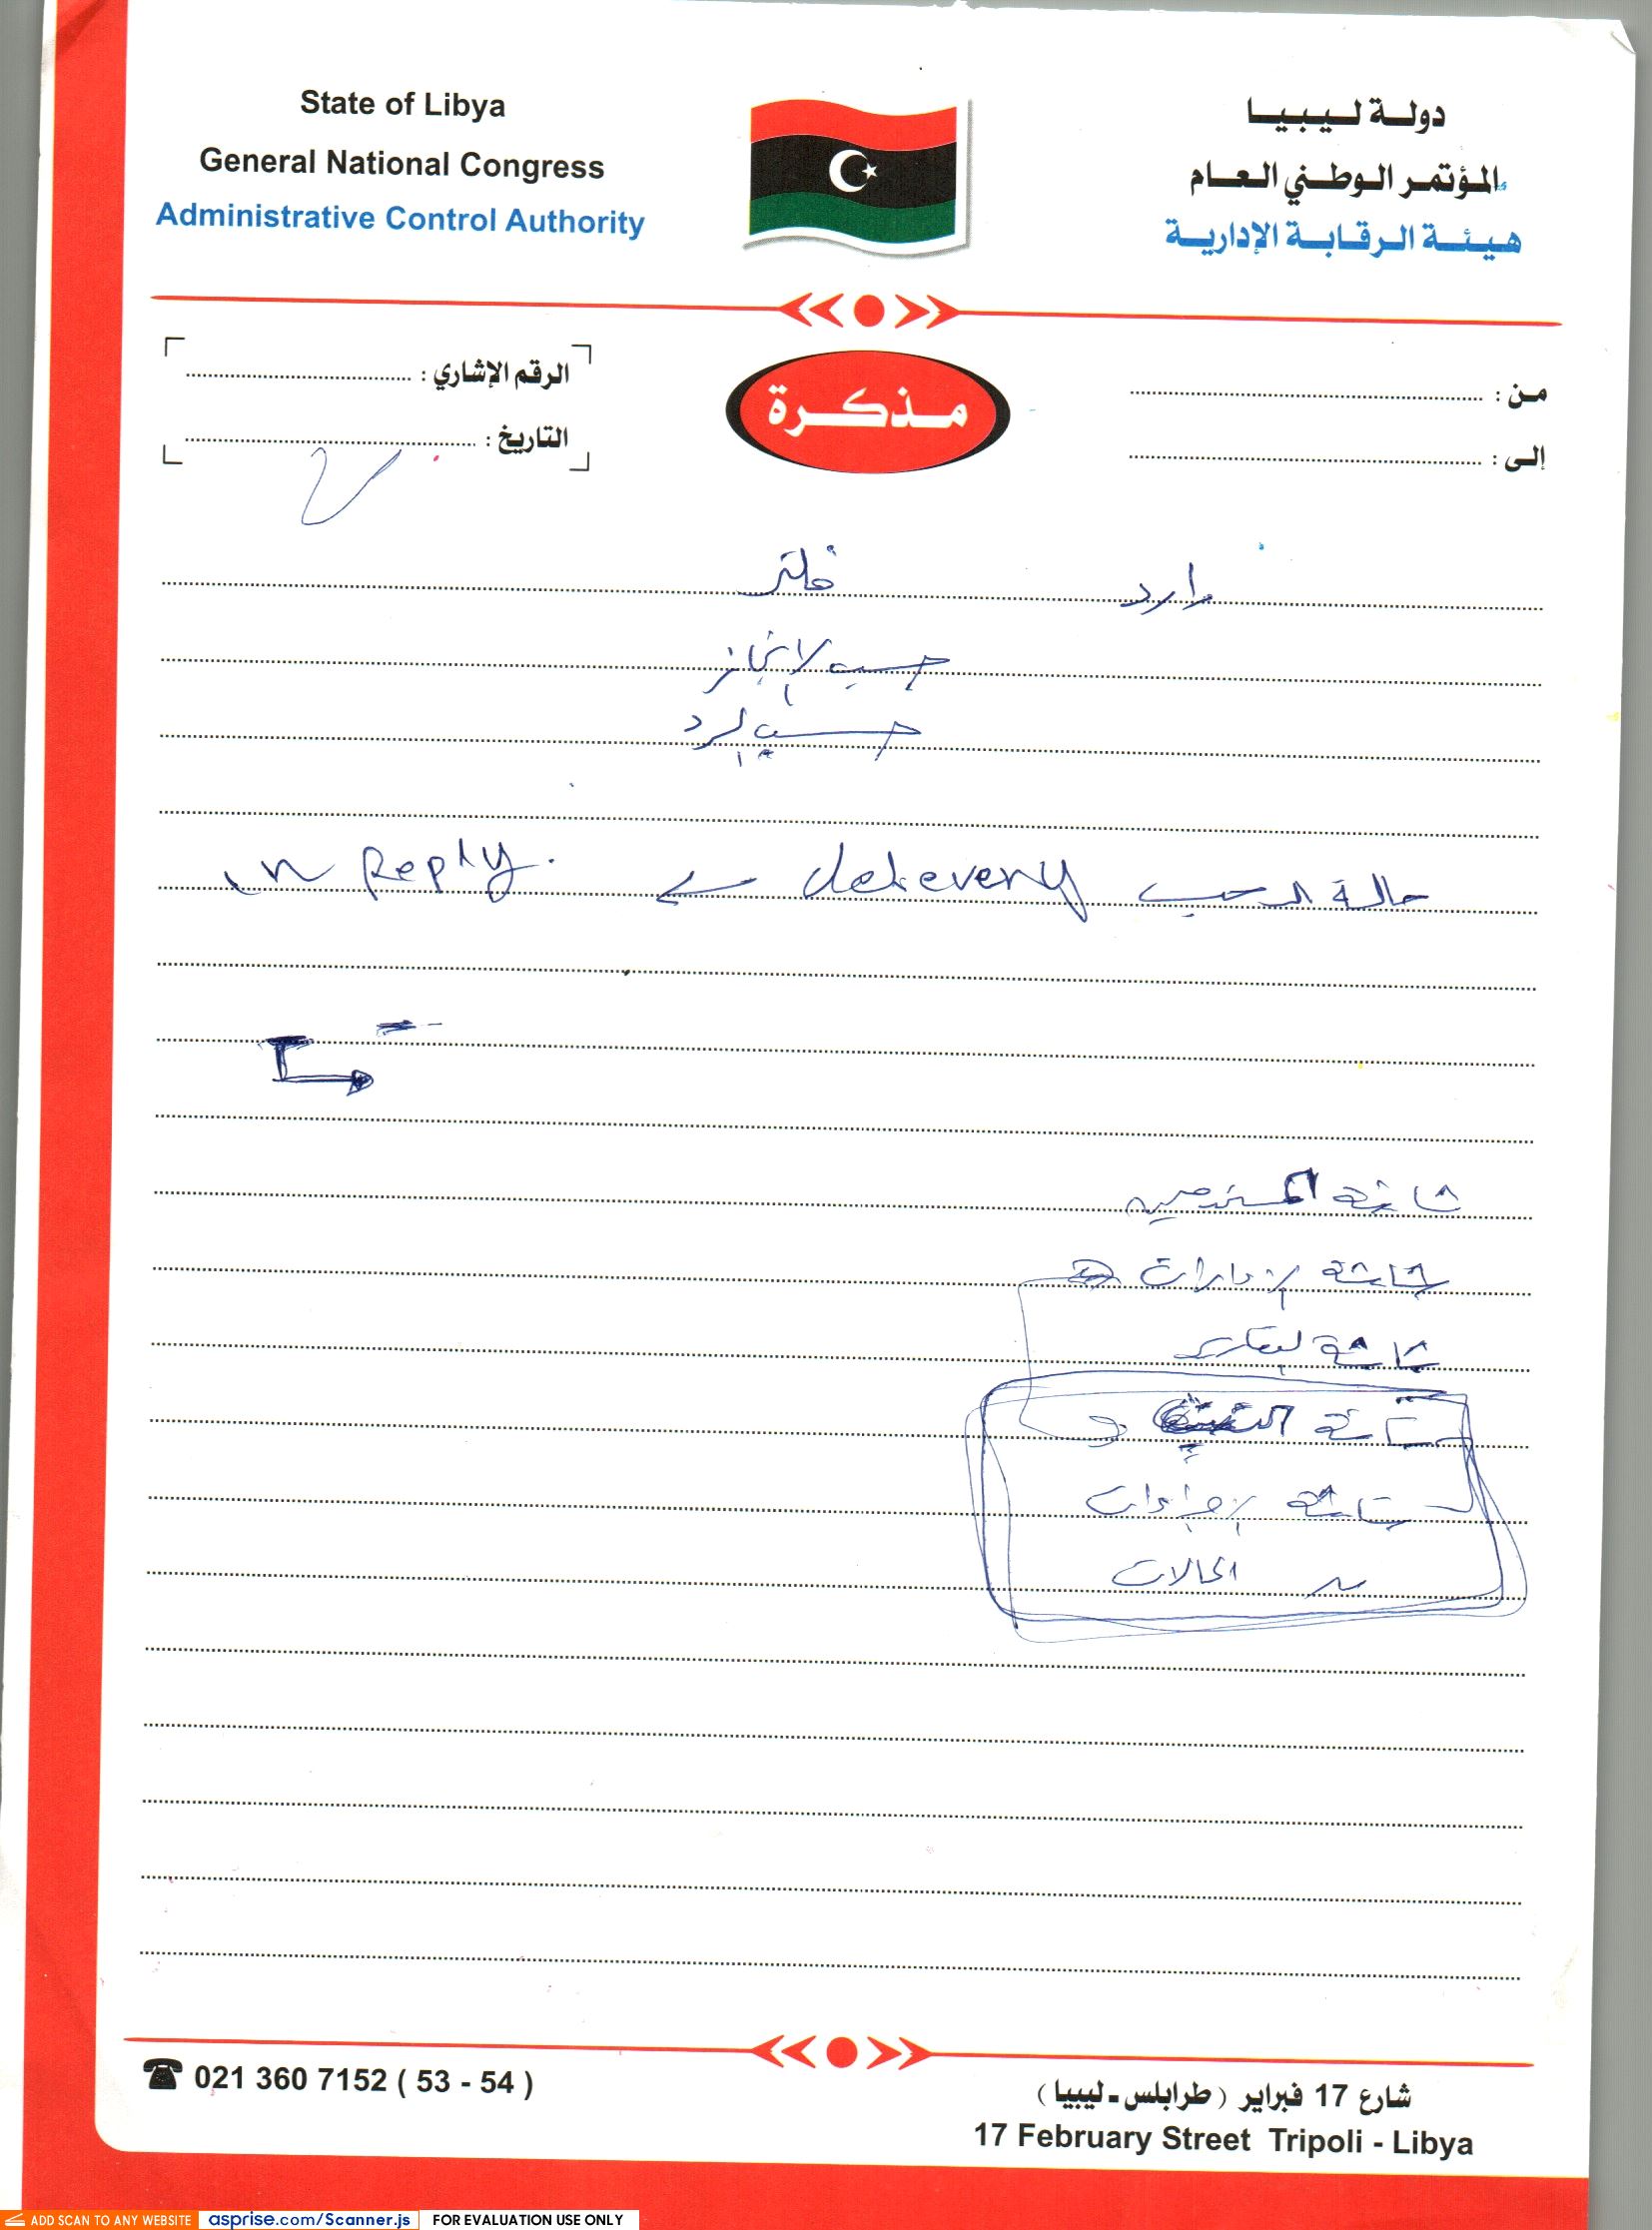 State of Libya
General National Congress
Administrative Control Authority
دولة ليبيا
المؤتمر الوطني العام
هيئة الرقابة الإدارية
من :
إلى :
مذكرة
الرقم الإشاري :
التاريخ :
وارد فلتر
حسب الانجاز
حسب الرد
حالة السحب delievery ← in Reply.
شاشة المستخدمين
شاشة الادارات
شاشة التقارير
شاشة
شاشة الاجراءات
الحالات
021 360 7152 ( 53 - 54 )
شارع 17 فبراير ( طرابلس - ليبيا )
17 February Street Tripoli - Libya
ADD SCAN TO ANY WEBSITE asprise.com/Scanner.js FOR EVALUATION USE ONLY